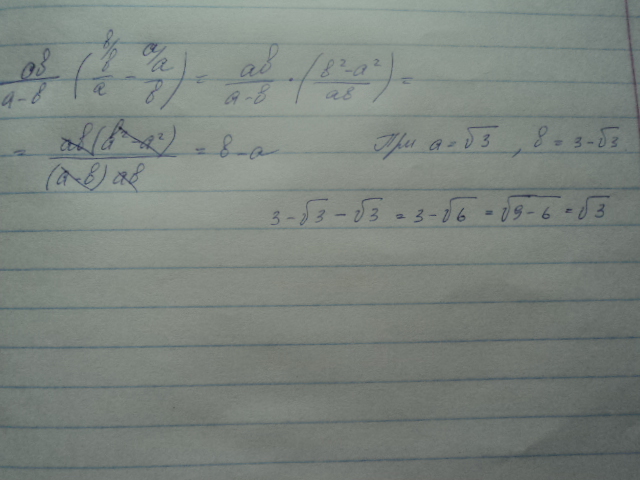 ab/(a-b) (b/a - a/b) = ab/(a-b) · ((b²-a²)/ab) =
= ab(b²-a²)/((a-b)ab) = b-a При a=√3, b=3-√3
3-√3-√3 = 3-√6 = √9-6 = √3